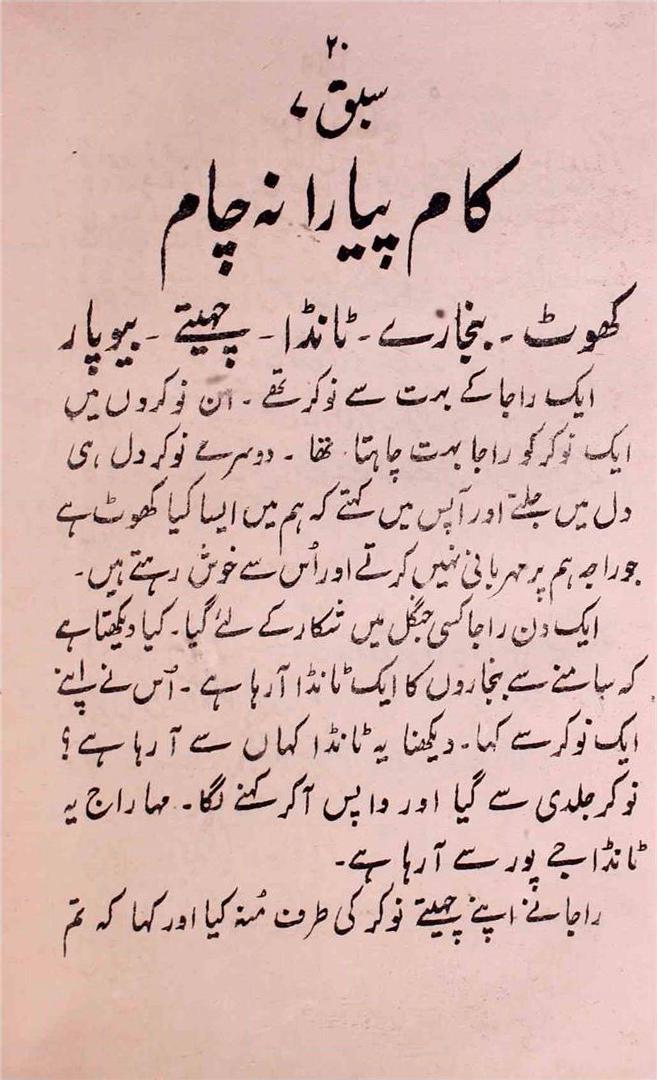 ۲۰
سبق ۷
کام پیارا نہ چام
کھوٹ ۔ بنجارے ۔ ٹانڈا ۔ چہیتے ۔ بیوپار
ایک راجا کے بہت سے نوکر تھے ۔ ان نوکروں میں
ایک نوکر کو راجا بہت چاہتا تھا ۔ دوسرے نوکر دل ہی
دل میں جلتے اور آپس میں کہتے کہ ہم میں ایسا کیا کھوٹ ہے
جو راجہ ہم پر مہربانی نہیں کرتے اور اُس سے خوش رہتے ہیں ۔
ایک دن راجا کسی جنگل میں شکار کے لئے گیا ۔ کیا دیکھتا ہے
کہ سامنے سے بنجاروں کا ایک ٹانڈا آ رہا ہے ۔ اُس نے اپنے
ایک نوکر سے کہا ۔ دیکھنا یہ ٹانڈا کہاں سے آ رہا ہے ؟
نوکر جلدی سے گیا اور واپس آ کر کہنے لگا ۔ مہاراج یہ
ٹانڈا جے پور سے آ رہا ہے ۔
راجا نے اپنے چہیتے نوکر کی طرف مُنہ کیا اور کہا کہ تم